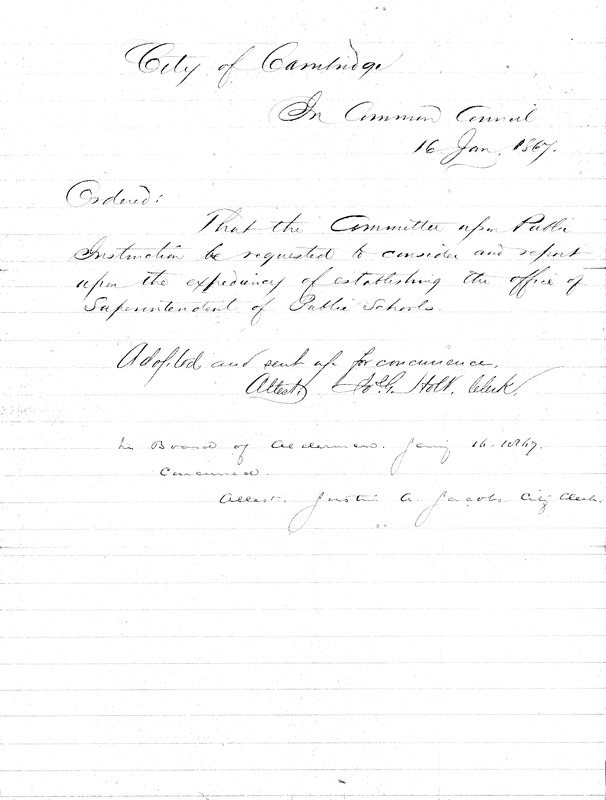 City of Cambridge
In Common Council
16 Jan. 1867.
Ordered:
That the Committee upon Public
Instruction be requested to consider and report
upon the expediency of establishing the office of
Superintendent of Public Schools.
Adopted and sent up for concurrence.
Attest, Jos. G. Holt, Clerk.
In Board of Aldermen. Jany 16. 1867.
Concurred.
Attest. Justin A. Jacobs. City Clerk.